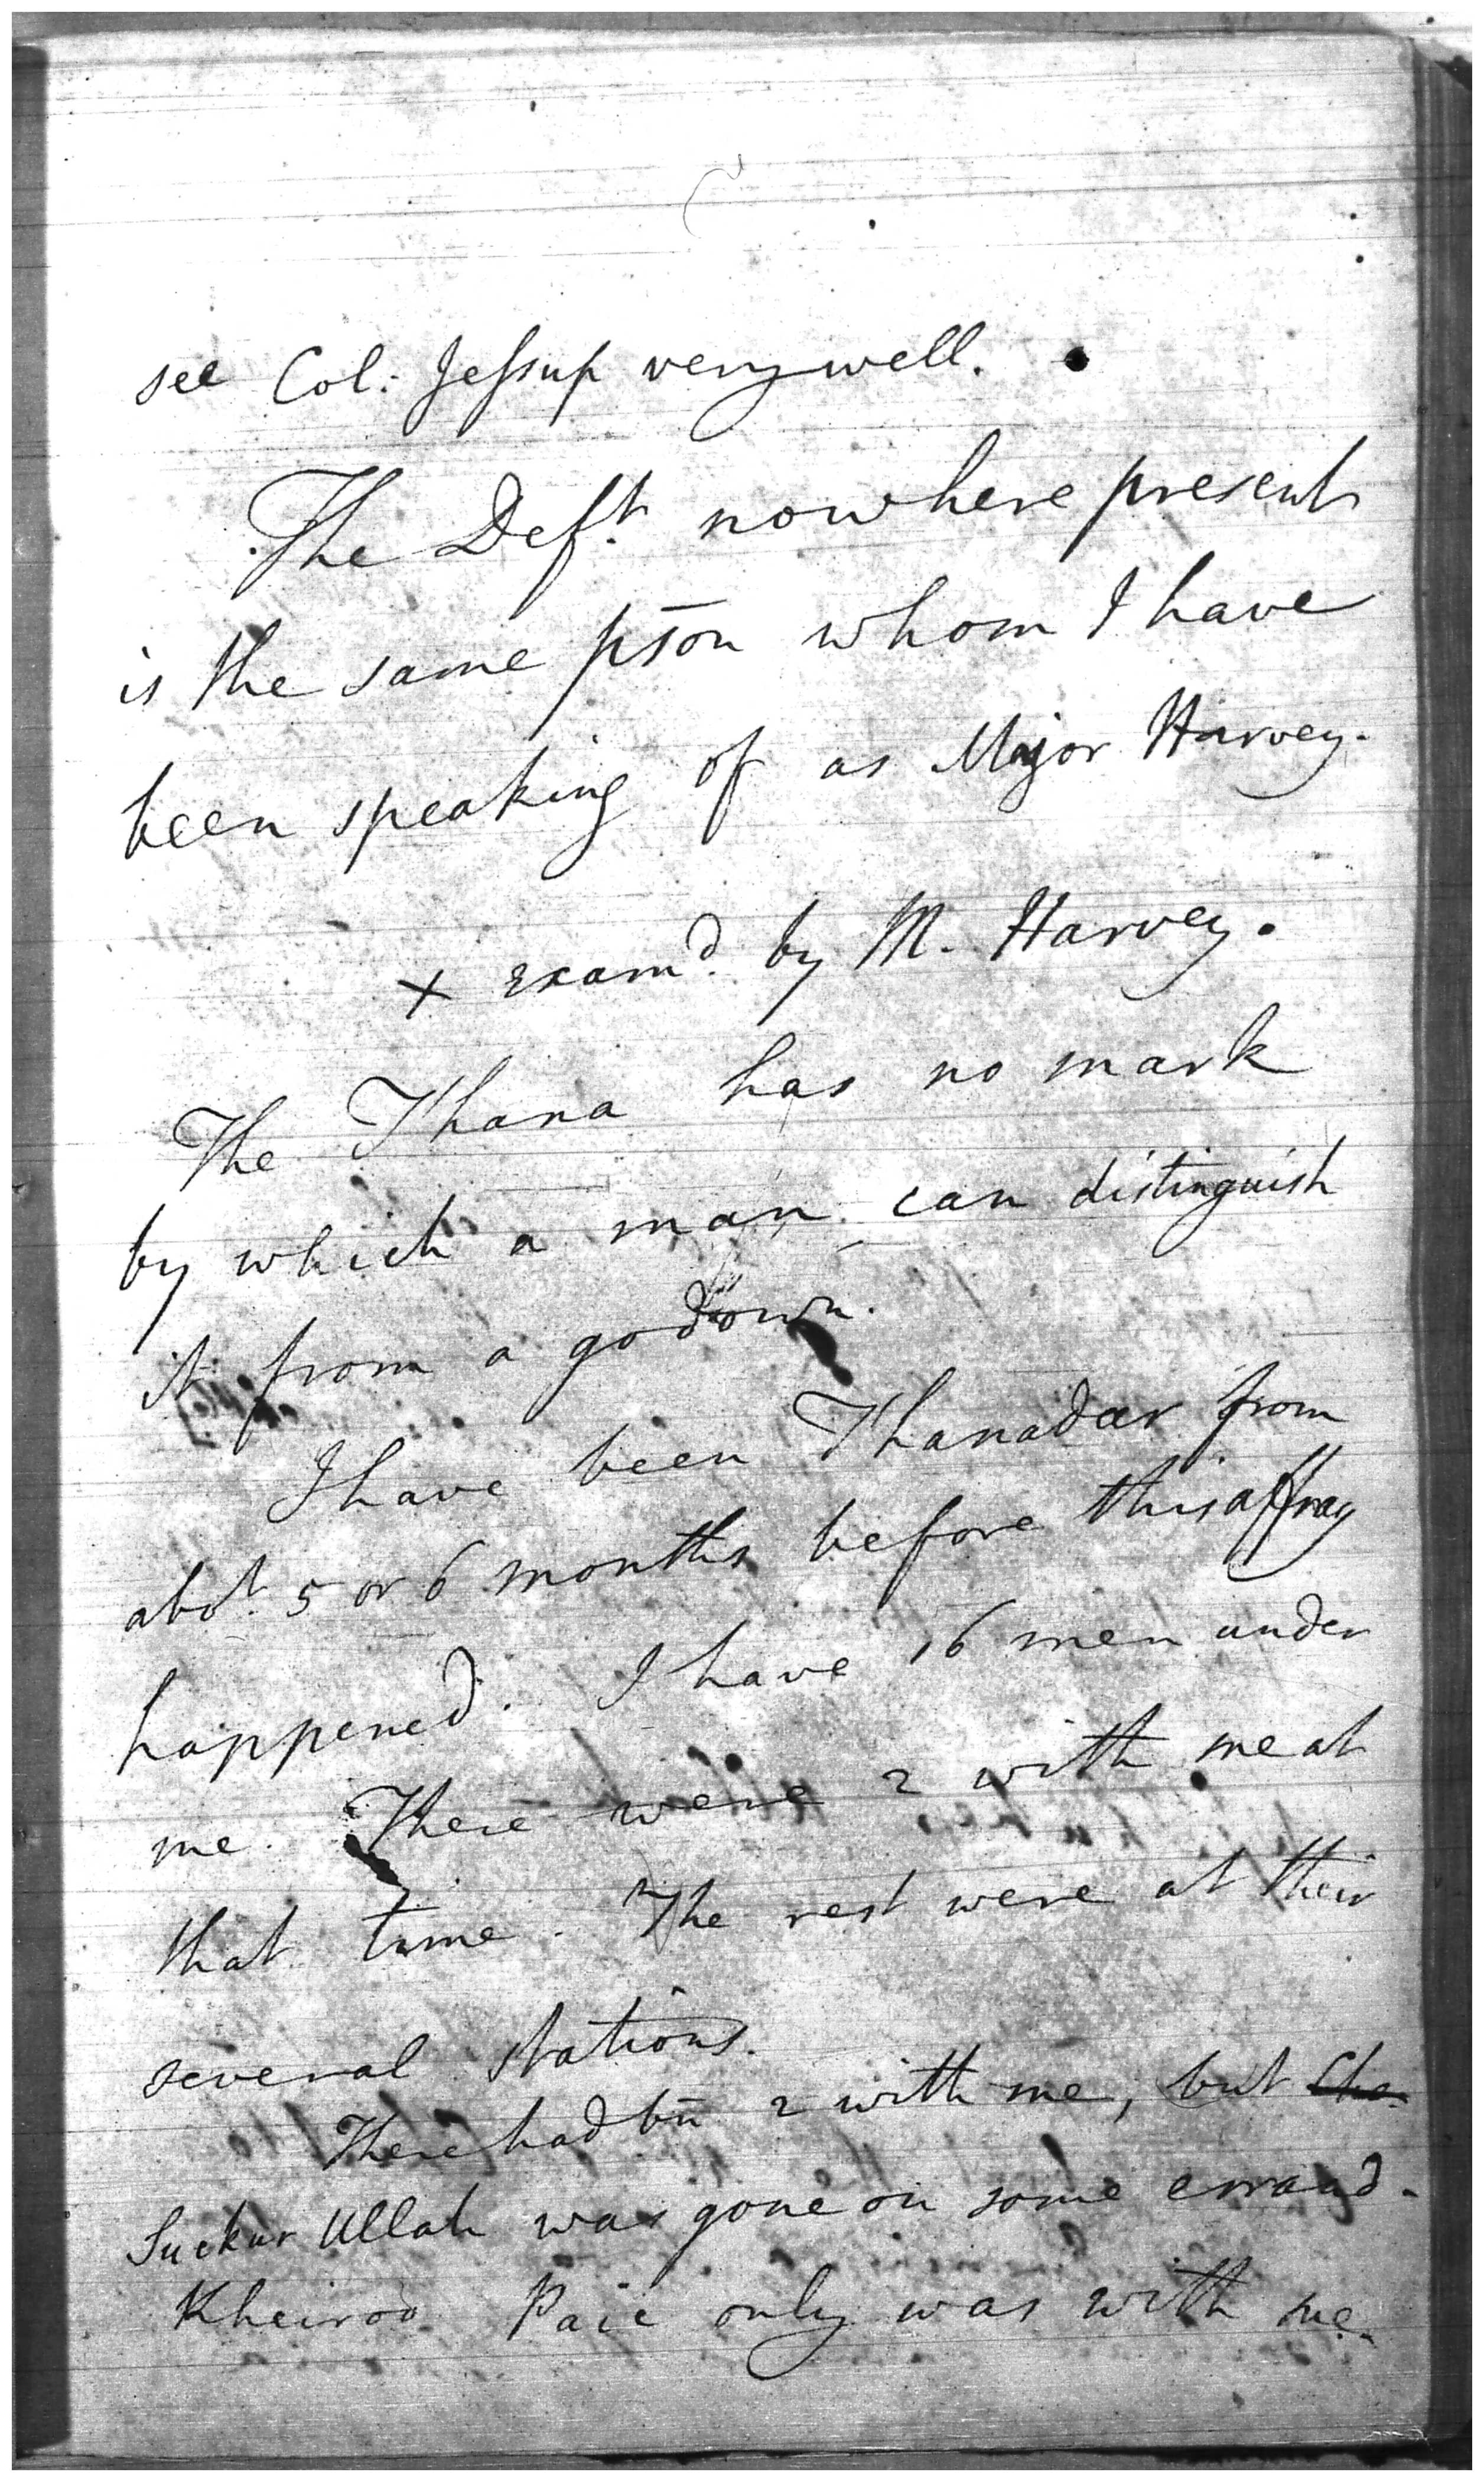 see Col: Jessup very well.
The Deft. now here present
is the same pson whom I have
been speaking of as Major Harvey.
x examd. by M. Harvey.
The Thana has no mark
by which a man can distinguish
it from a godown.
I have been Thanadar from
abot. 5 or 6 months before this affray
happened. I have 16 men under
me. There were 2 with me at
that time. The rest were at their
several stations.
There had bn 2 with me, but
Suckur Ullah was gone on some errand.
Kheiroo Paic only was with me.